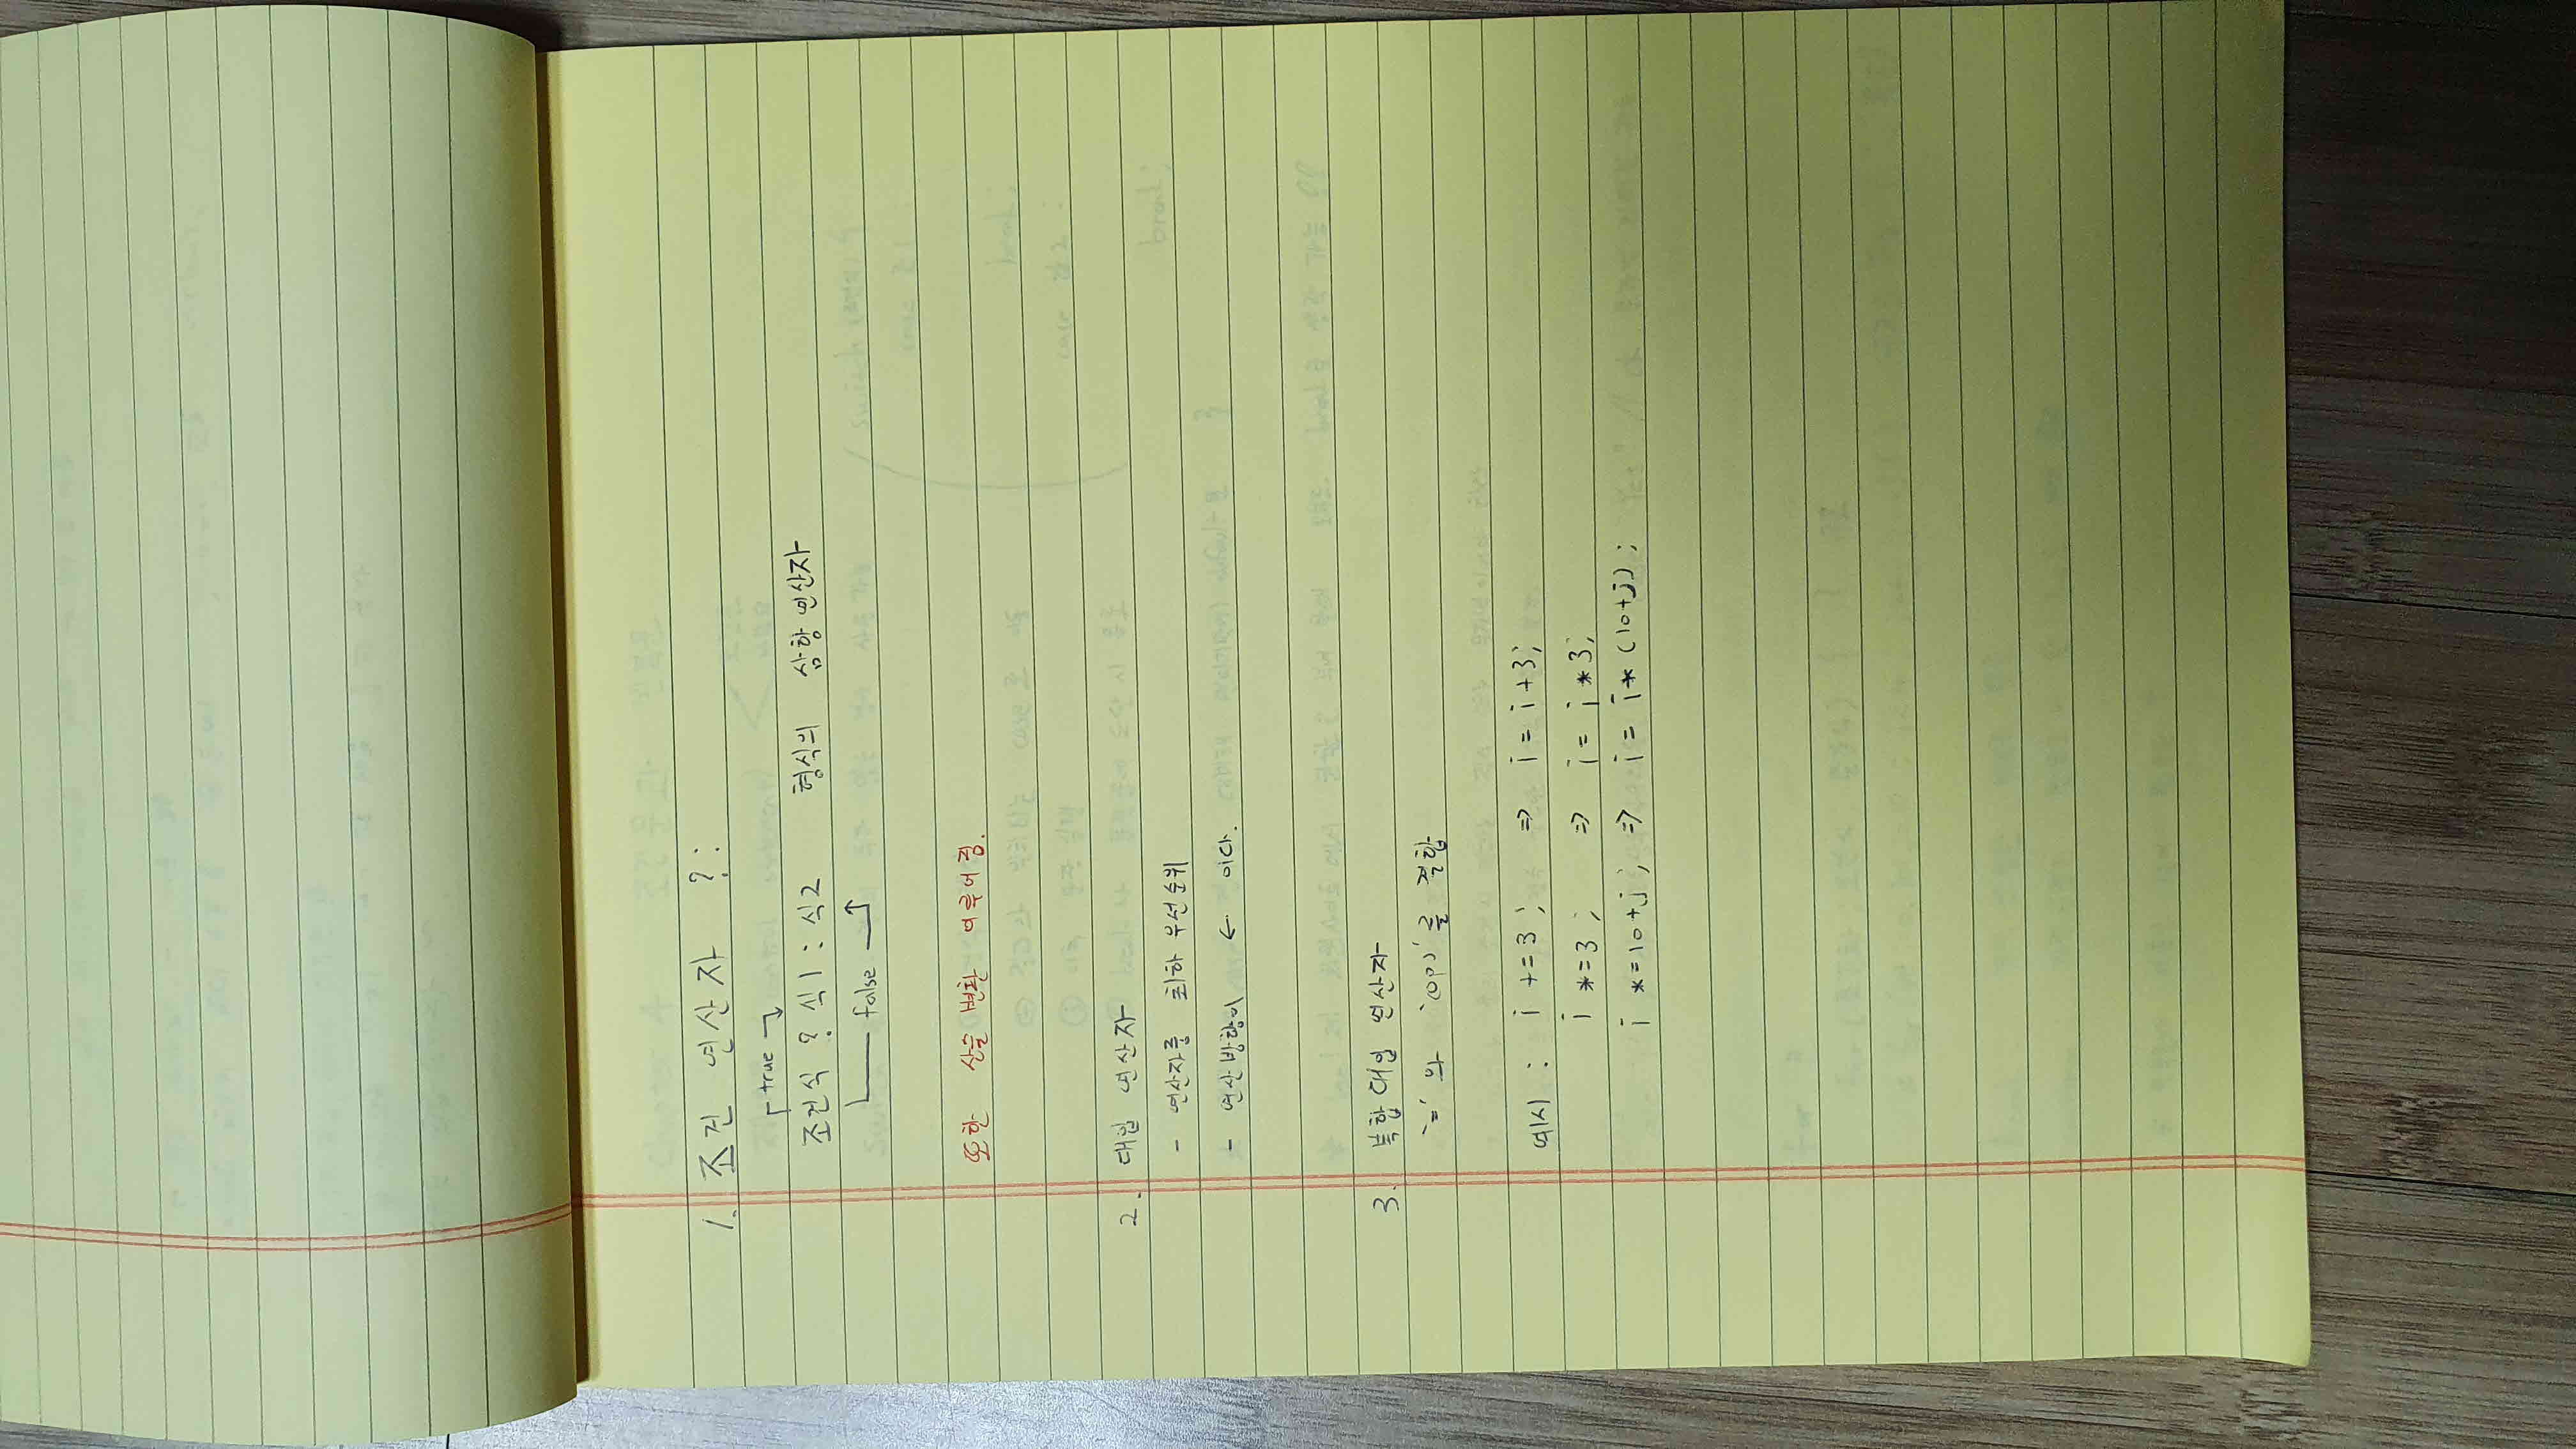 1. 조건 연산자 ?:
true
조건식 ? 식1 : 식2 형식의 삼항연산자
false
또한 산술 변환 이루어짐.
2. 대입 연산자
- 연산자중 최하 우선순위
- 연산방향이 ← 이다.
3. 복합대입 연산자
'=' 와 '(op)' 를 결합
예시 : i += 3 ; => i = i + 3;
i *= 3 ; => i = i * 3;
i *= 10+j ; => i = i * (10+j) ;